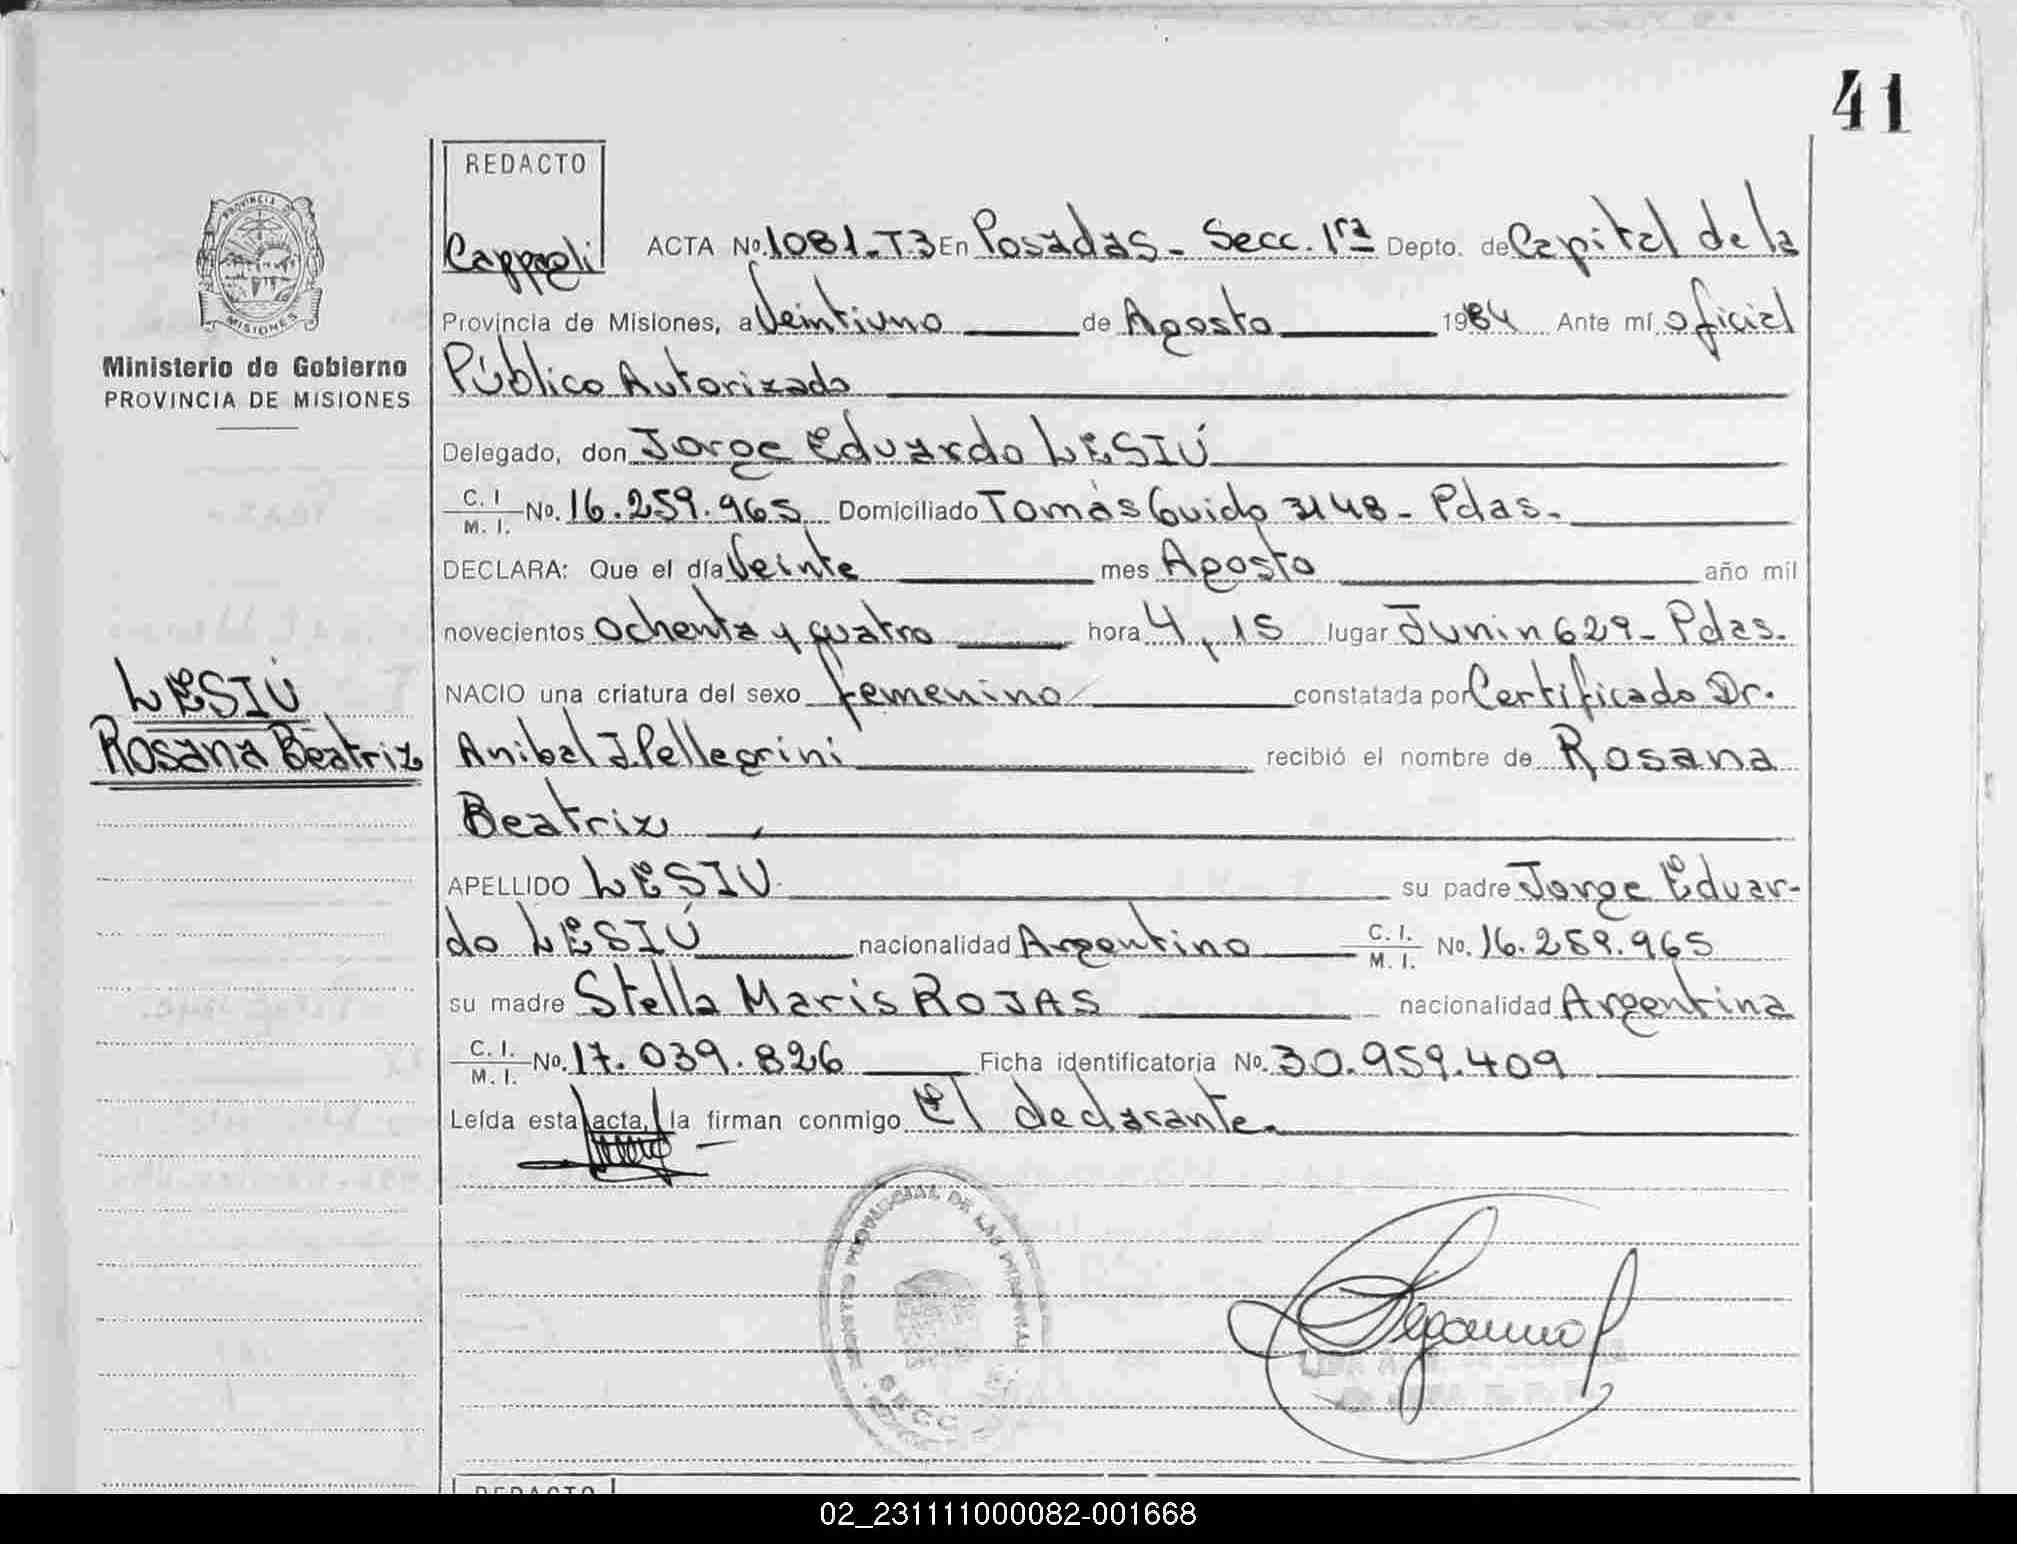 41
REDACTO
Cappagli
PROVINCIA DE
MISIONES
Ministerio de Gobierno
PROVINCIA DE MISIONES
LESIÚ
Rosana Beatriz
ACTA No. 1081-T3 En Posadas - Secc. 1ra Depto. de Capital de la
Provincia de Misiones, a Veintiuno de Agosto 1984 Ante mí oficial
Público Autorizado
Delegado, don Jorge Eduardo LESIÚ
C. I. M. I. No. 16.259.965 Domiciliado Tomás Guido 3148 - Pdas.
DECLARA: Que el día Veinte mes Agosto año mil
novecientos Ochenta y quatro hora 4,15 lugar Junin 629 - Pdas.
NACIO una criatura del sexo femenino constatada por Certificado Dr.
Anibal J. Pellegrini recibió el nombre de Rosana
Beatriz
APELLIDO LESIÚ su padre Jorge Eduar-
do LESIÚ nacionalidad Argentino C. I. M. I. No. 16.259.965
su madre Stella Maris ROJAS nacionalidad Argentina
C. I. M. I. No. 17.039.826 Ficha identificatoria No. 30.959.409
Leída esta acta, la firman conmigo El declarante.
REDACTO
02_231111000082-001668